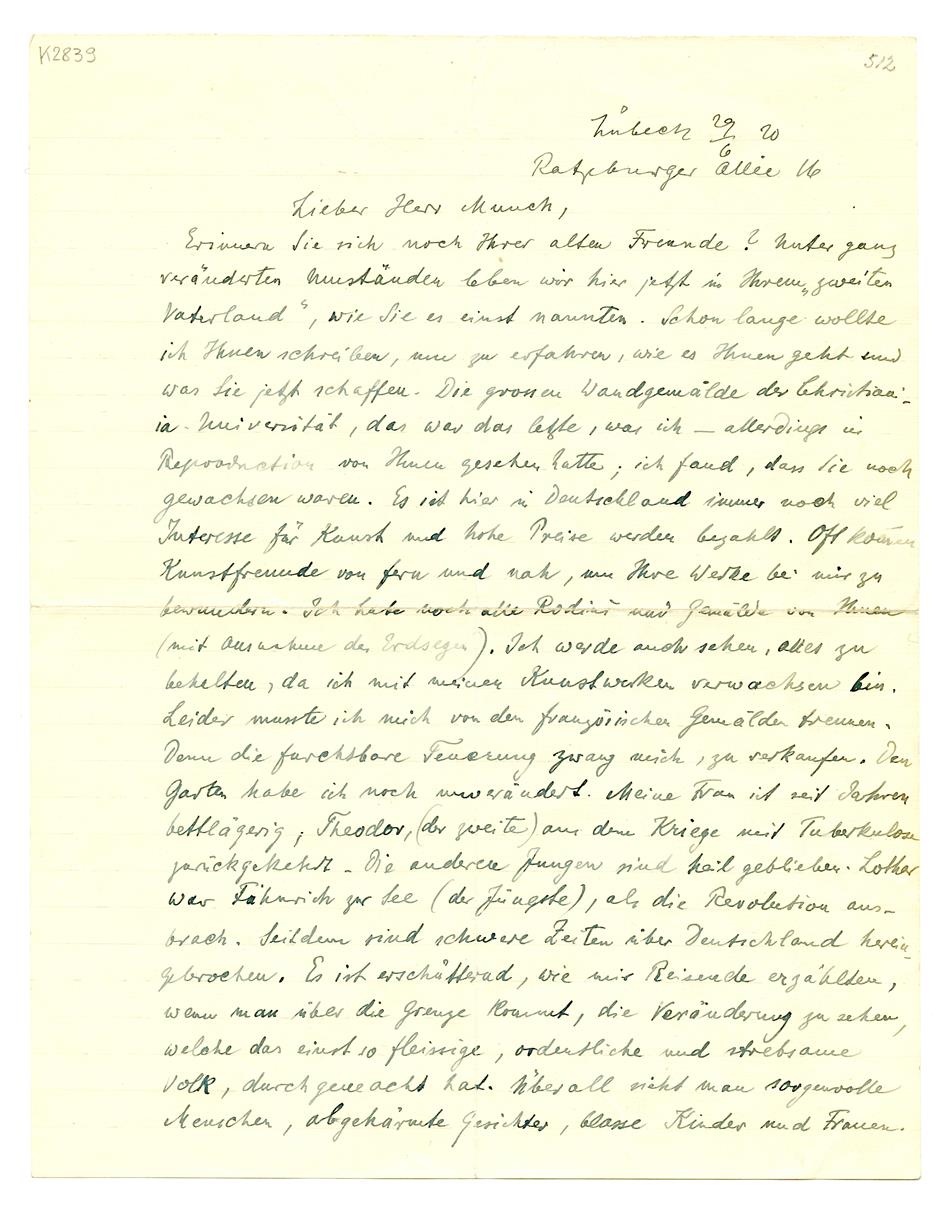 K2839
512
Lübeck 29/6 20
Ratzeburger Allée 16
Lieber Herr Munch,
Erinnern Sie sich noch Ihrer alten Freunde? Unter ganz
veränderten Umständen leben wir hier jetzt in Ihrem „zweiten
Vaterland“, wie Sie es einst nannten. Schon lange wollte
ich Ihnen schreiben, um zu erfahren, wie es Ihnen geht und
was Sie jetzt schaffen. Die grossen Wandgemälde der Christian-
ia-Universität, das war das letzte, was ich – allerdings in
Reproduction von Ihnen gesehen hatte; ich fand, dass Sie noch
gewachsen waren. Es ist hier in Deutschland immer noch viel
Interesse für Kunst und hohe Preise werden bezahlt. Oft kommen
Kunstfreunde von fern und nah, um Ihre Werke bei mir zu
bewundern. Ich habe noch alle Rodins und Gemälde von Ihnen
(mit Ausnahme des Erdsegen). Ich werde auch sehen, alles zu
behalten, da ich mit meinen Kunstwerken verwachsen bin.
Leider musste ich mich von den französischen Gemälden trennen.
Denn die furchtbare Teuerung zwang mich, zu verkaufen. Den
Garten habe ich noch unverändert. Meine Frau ist seit Jahren
bettlägerig; Theodor, (der zweite) aus dem Kriege mit Tuberkulose
zurückgekehrt – Die anderen Jungen sind heil geblieben. Lothar
war Fähnrich zur See (der Jüngste), als die Revolution aus-
brach. Seitdem sind schwere Zeiten über Deutschland herein-
gebrochen. Es ist erschütternd, wie mir Reisende erzählten,
wenn man über die Grenze kommt, die Veränderung zu sehen,
welche das einst so fleissige, ordentliche und strebsame
Volk, durchgemacht hat. Überall sieht man sorgenvolle
Menschen, abgehärmte Gesichter, blasse Kinder und Frauen.